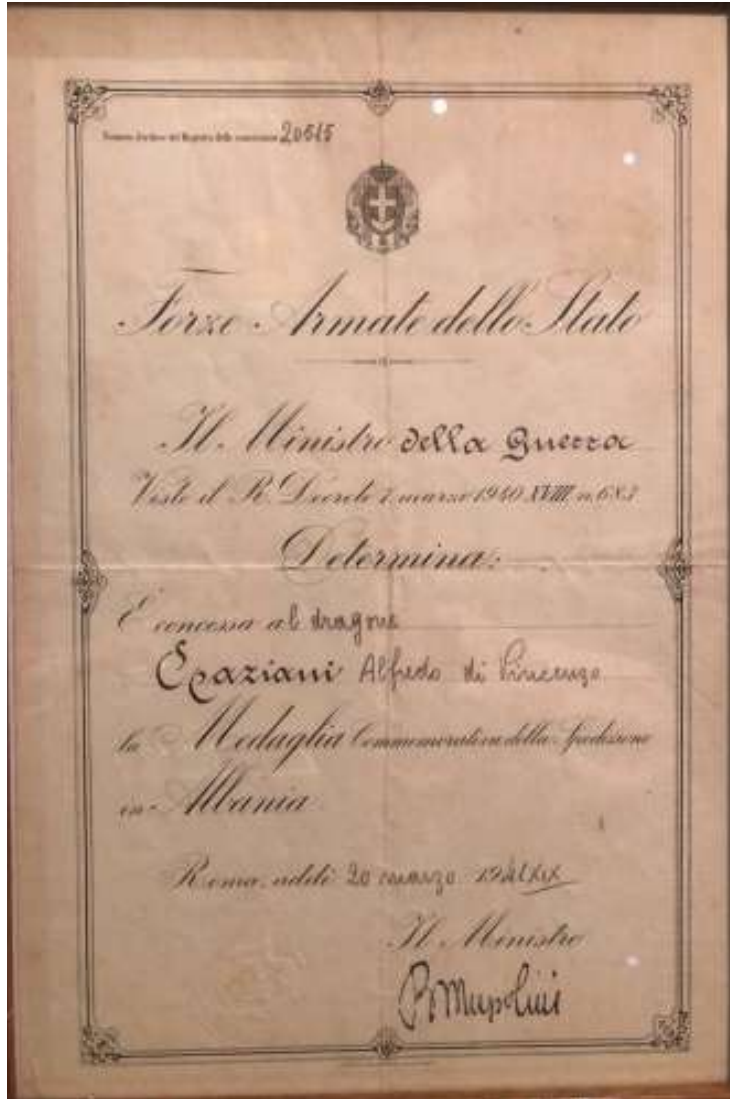 Numero d'ordine del Registro delle concessioni 20515
Forze Armate dello Stato
Il Ministro della Guerra
Visto il R. Decreto 7 marzo 1940 XVIII n. 683
Determina:
È concessa al dragone
Graziani Alfredo di Vincenzo
la Medaglia Commemorativa della Spedizione
in Albania
Roma, addì 20 marzo 1941 XIX
Il Ministro
B Mussolini